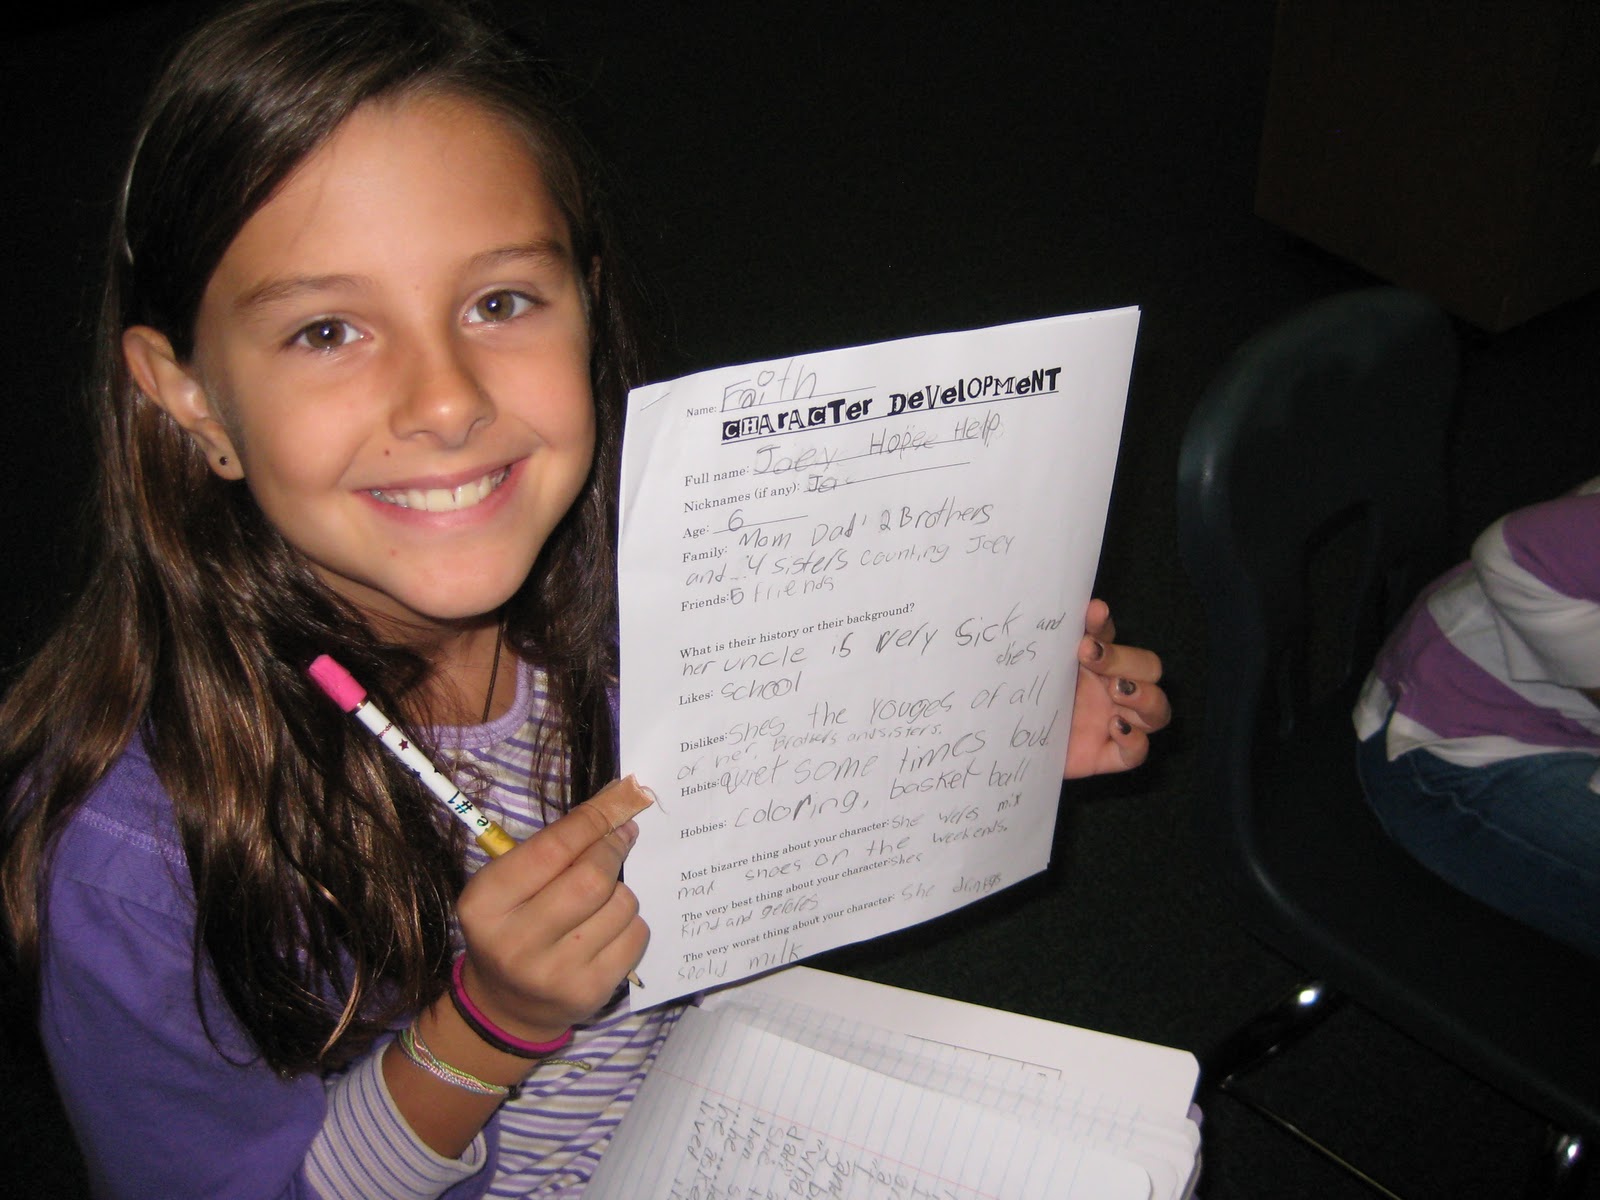 Name: Faith
CHARACTER DEVELOPMENT
Full name: Joey Hope Help
Nicknames (if any): Jo
Age: 6
Family: Mom Dad 2 Brothers
and 4 sisters counting Joey
Friends: 5 friends
What is their history or their background?
her uncle is very sick and dies
Likes: school
Dislikes: shes the youges of all
of her Brothers and sisters.
Habits: quiet some times loud
Hobbies: coloring, basket ball
Most bizarre thing about your character: she weres mix
max shoes on the weekends.
The very best thing about your character: shes
kind and
The very worst thing about your character: she drinks
spolid milk
#1